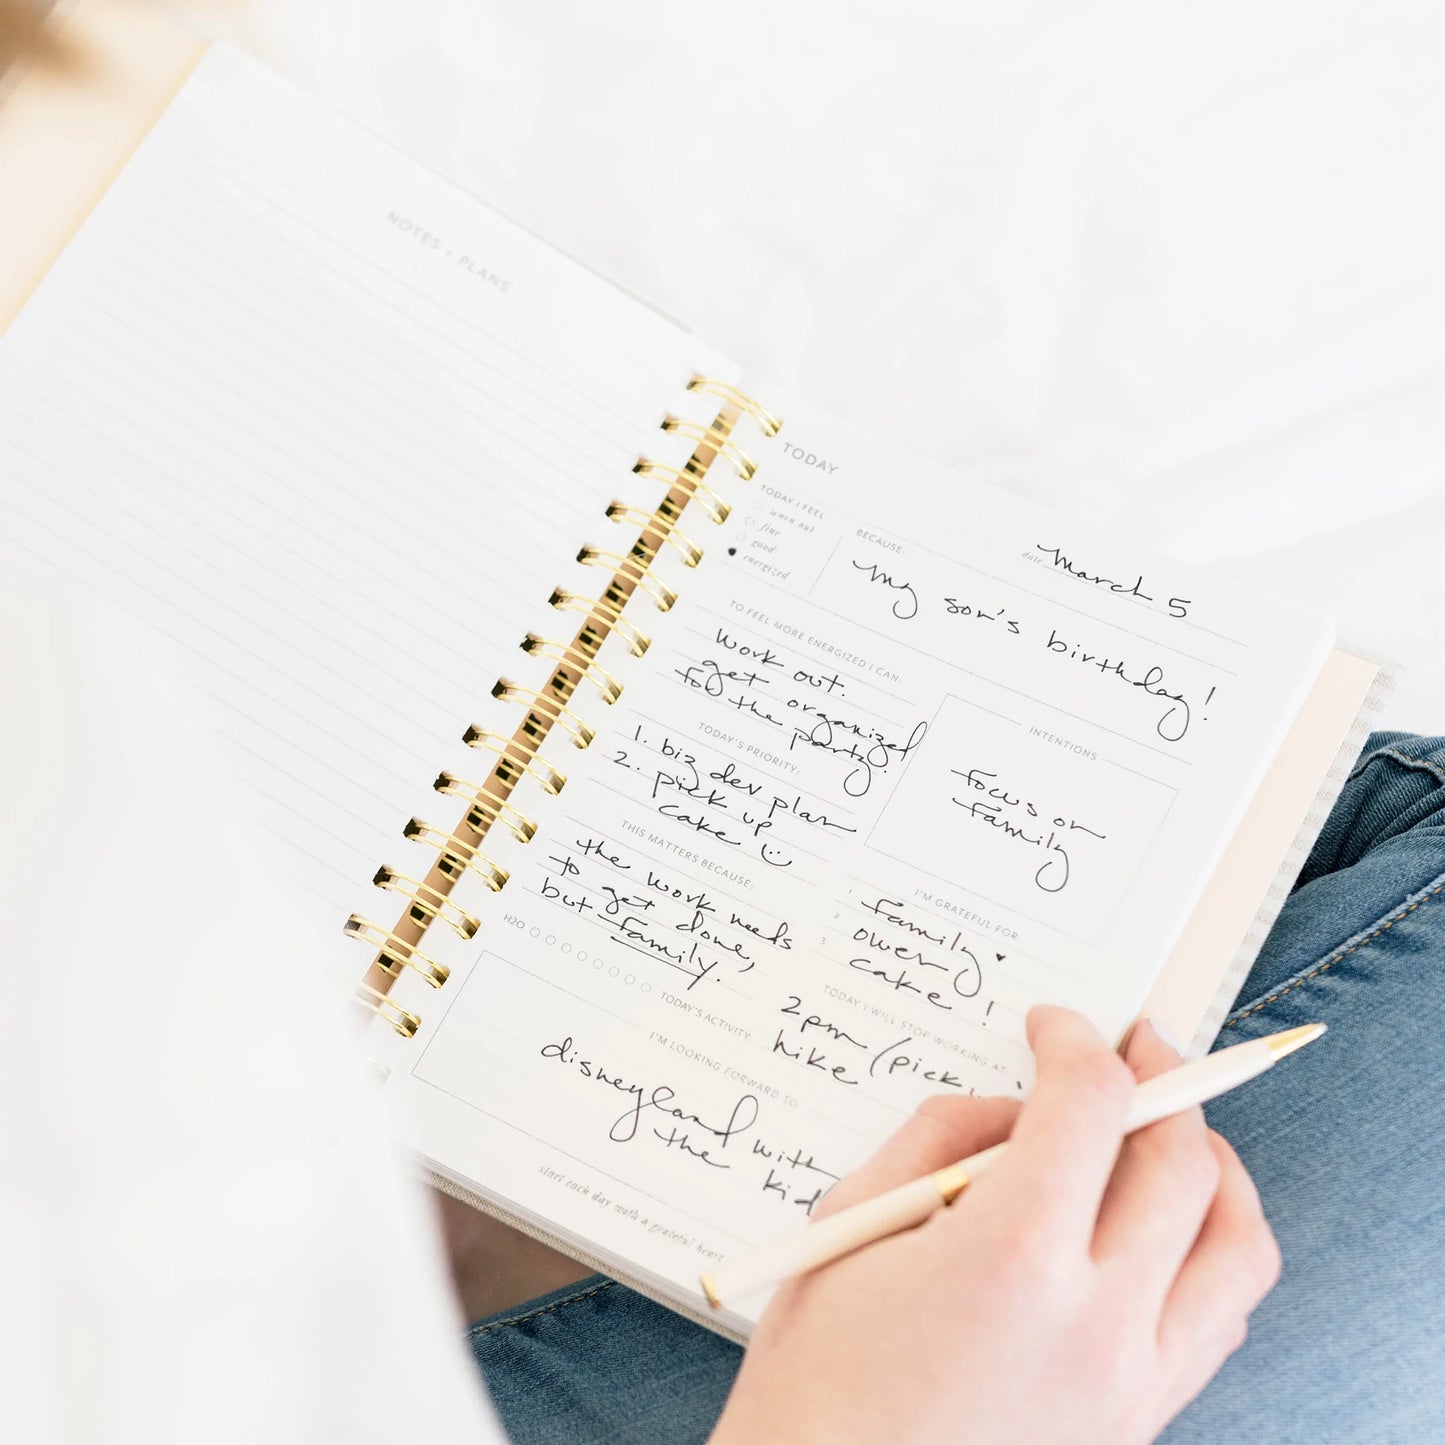 NOTES + PLANS
TODAY
date March 5
TODAY I FEEL
worn out
fine
good
energized
BECAUSE:
My son's birthday!
TO FEEL MORE ENERGIZED I CAN:
Work out.
get organized
for the party.
TODAY'S PRIORITY:
1. biz dev plan
2. pick up
cake
THIS MATTERS BECAUSE:
the work needs
to get done,
but family.
H2O
INTENTIONS
Focus on
Family
I'M GRATEFUL FOR
1 Family
2 Owen
3 cake!
TODAY I WILL STOP WORKING AT
2pm (pick
TODAY'S ACTIVITY:
hike
I'M LOOKING FORWARD TO
disneyland with
the kid
start each day with a grateful heart